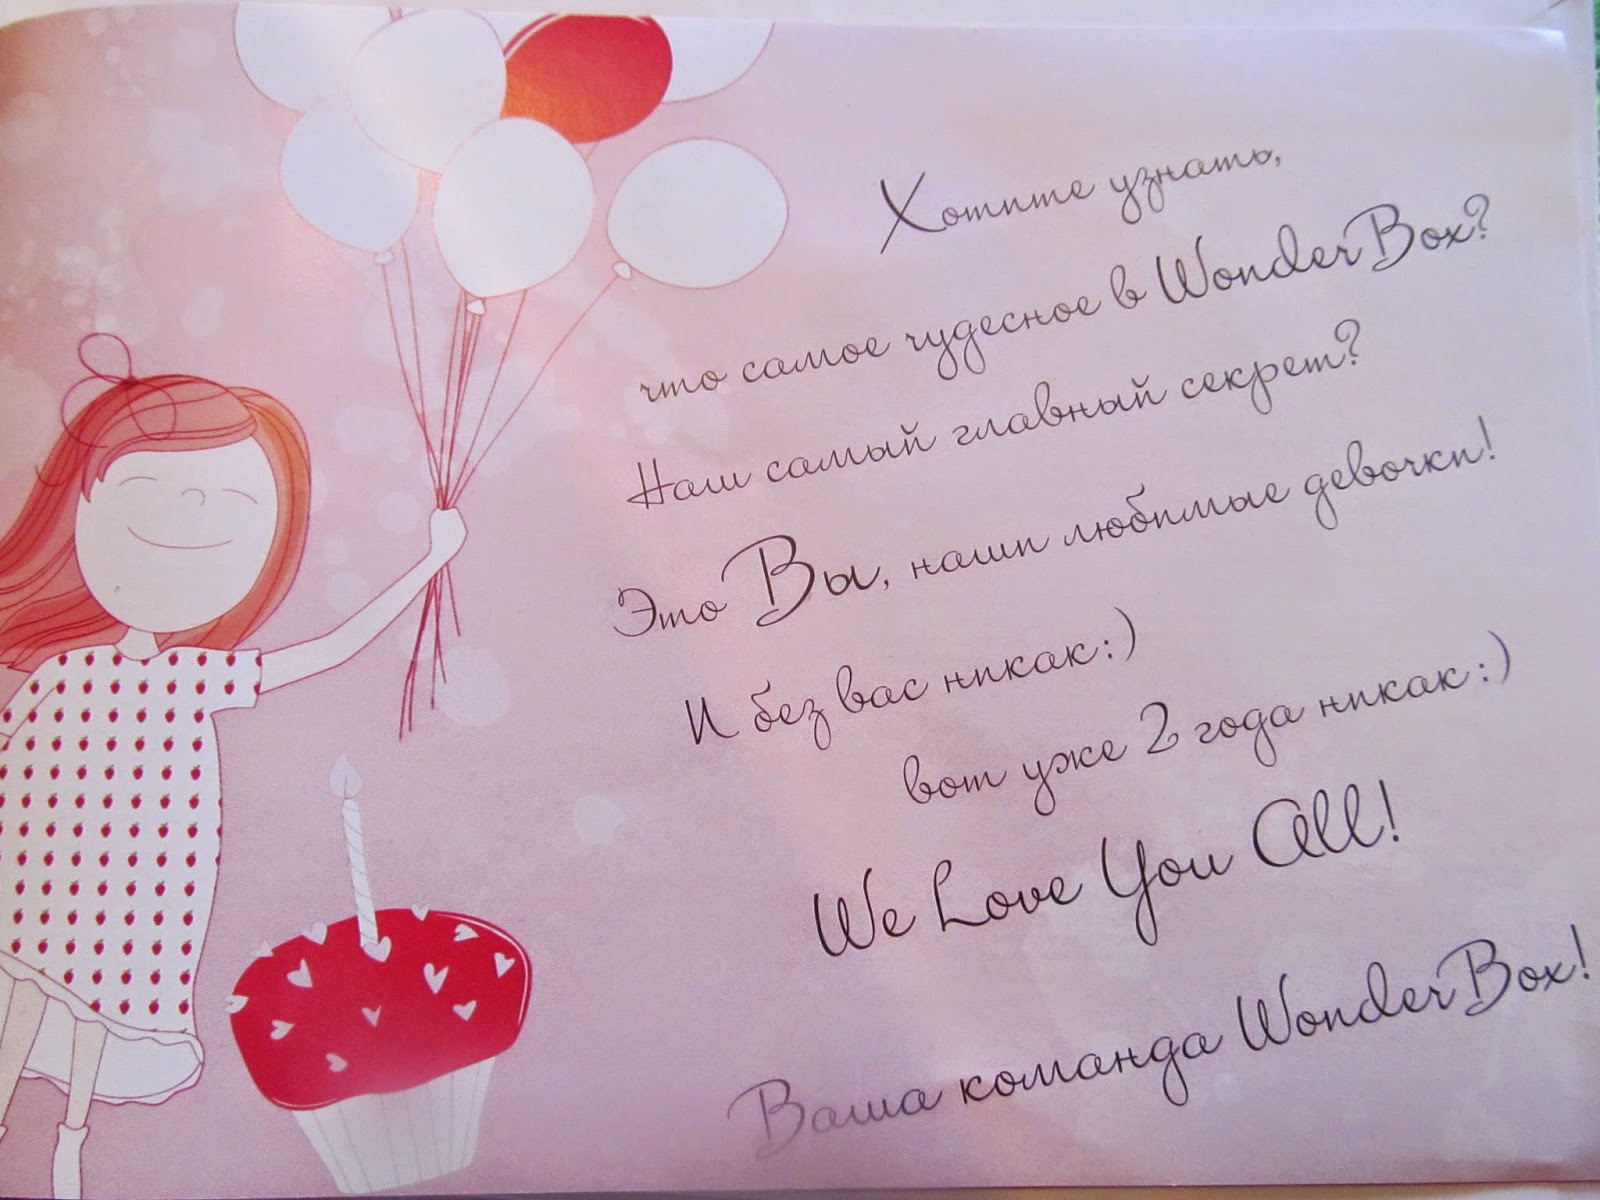 Хотите узнать,
что самое чудесное в WonderBox?
Наш самый главный секрет?
Это Вы, наши любимые девочки!
И без вас никак:)
вот уже 2 года никак:)
We Love You All!
Ваша команда WonderBox!